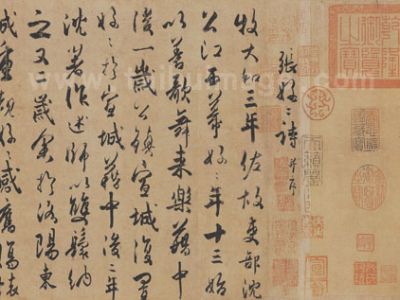 張好々詩 并序
牧大和三年佐故吏部沈
公江西幕好々年十三始
以善歌舞来樂籍中
後一歲公鎮宣城復置
好々於宣城籍中後二年
沈著作述師以雙鬟納
之又二歲余於洛陽東
城重覩好々感舊傷懷